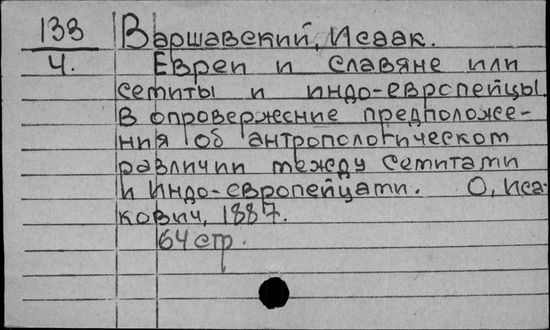 138 Варшавский, Исаак.
4. Евреи и славяне или
семиты и индо-европейцы.
В опровержение предположе-
ния об антропологическом
различии между семитами
и индо-европейцами. О, Иса-
кович, 1887.
64 стр.